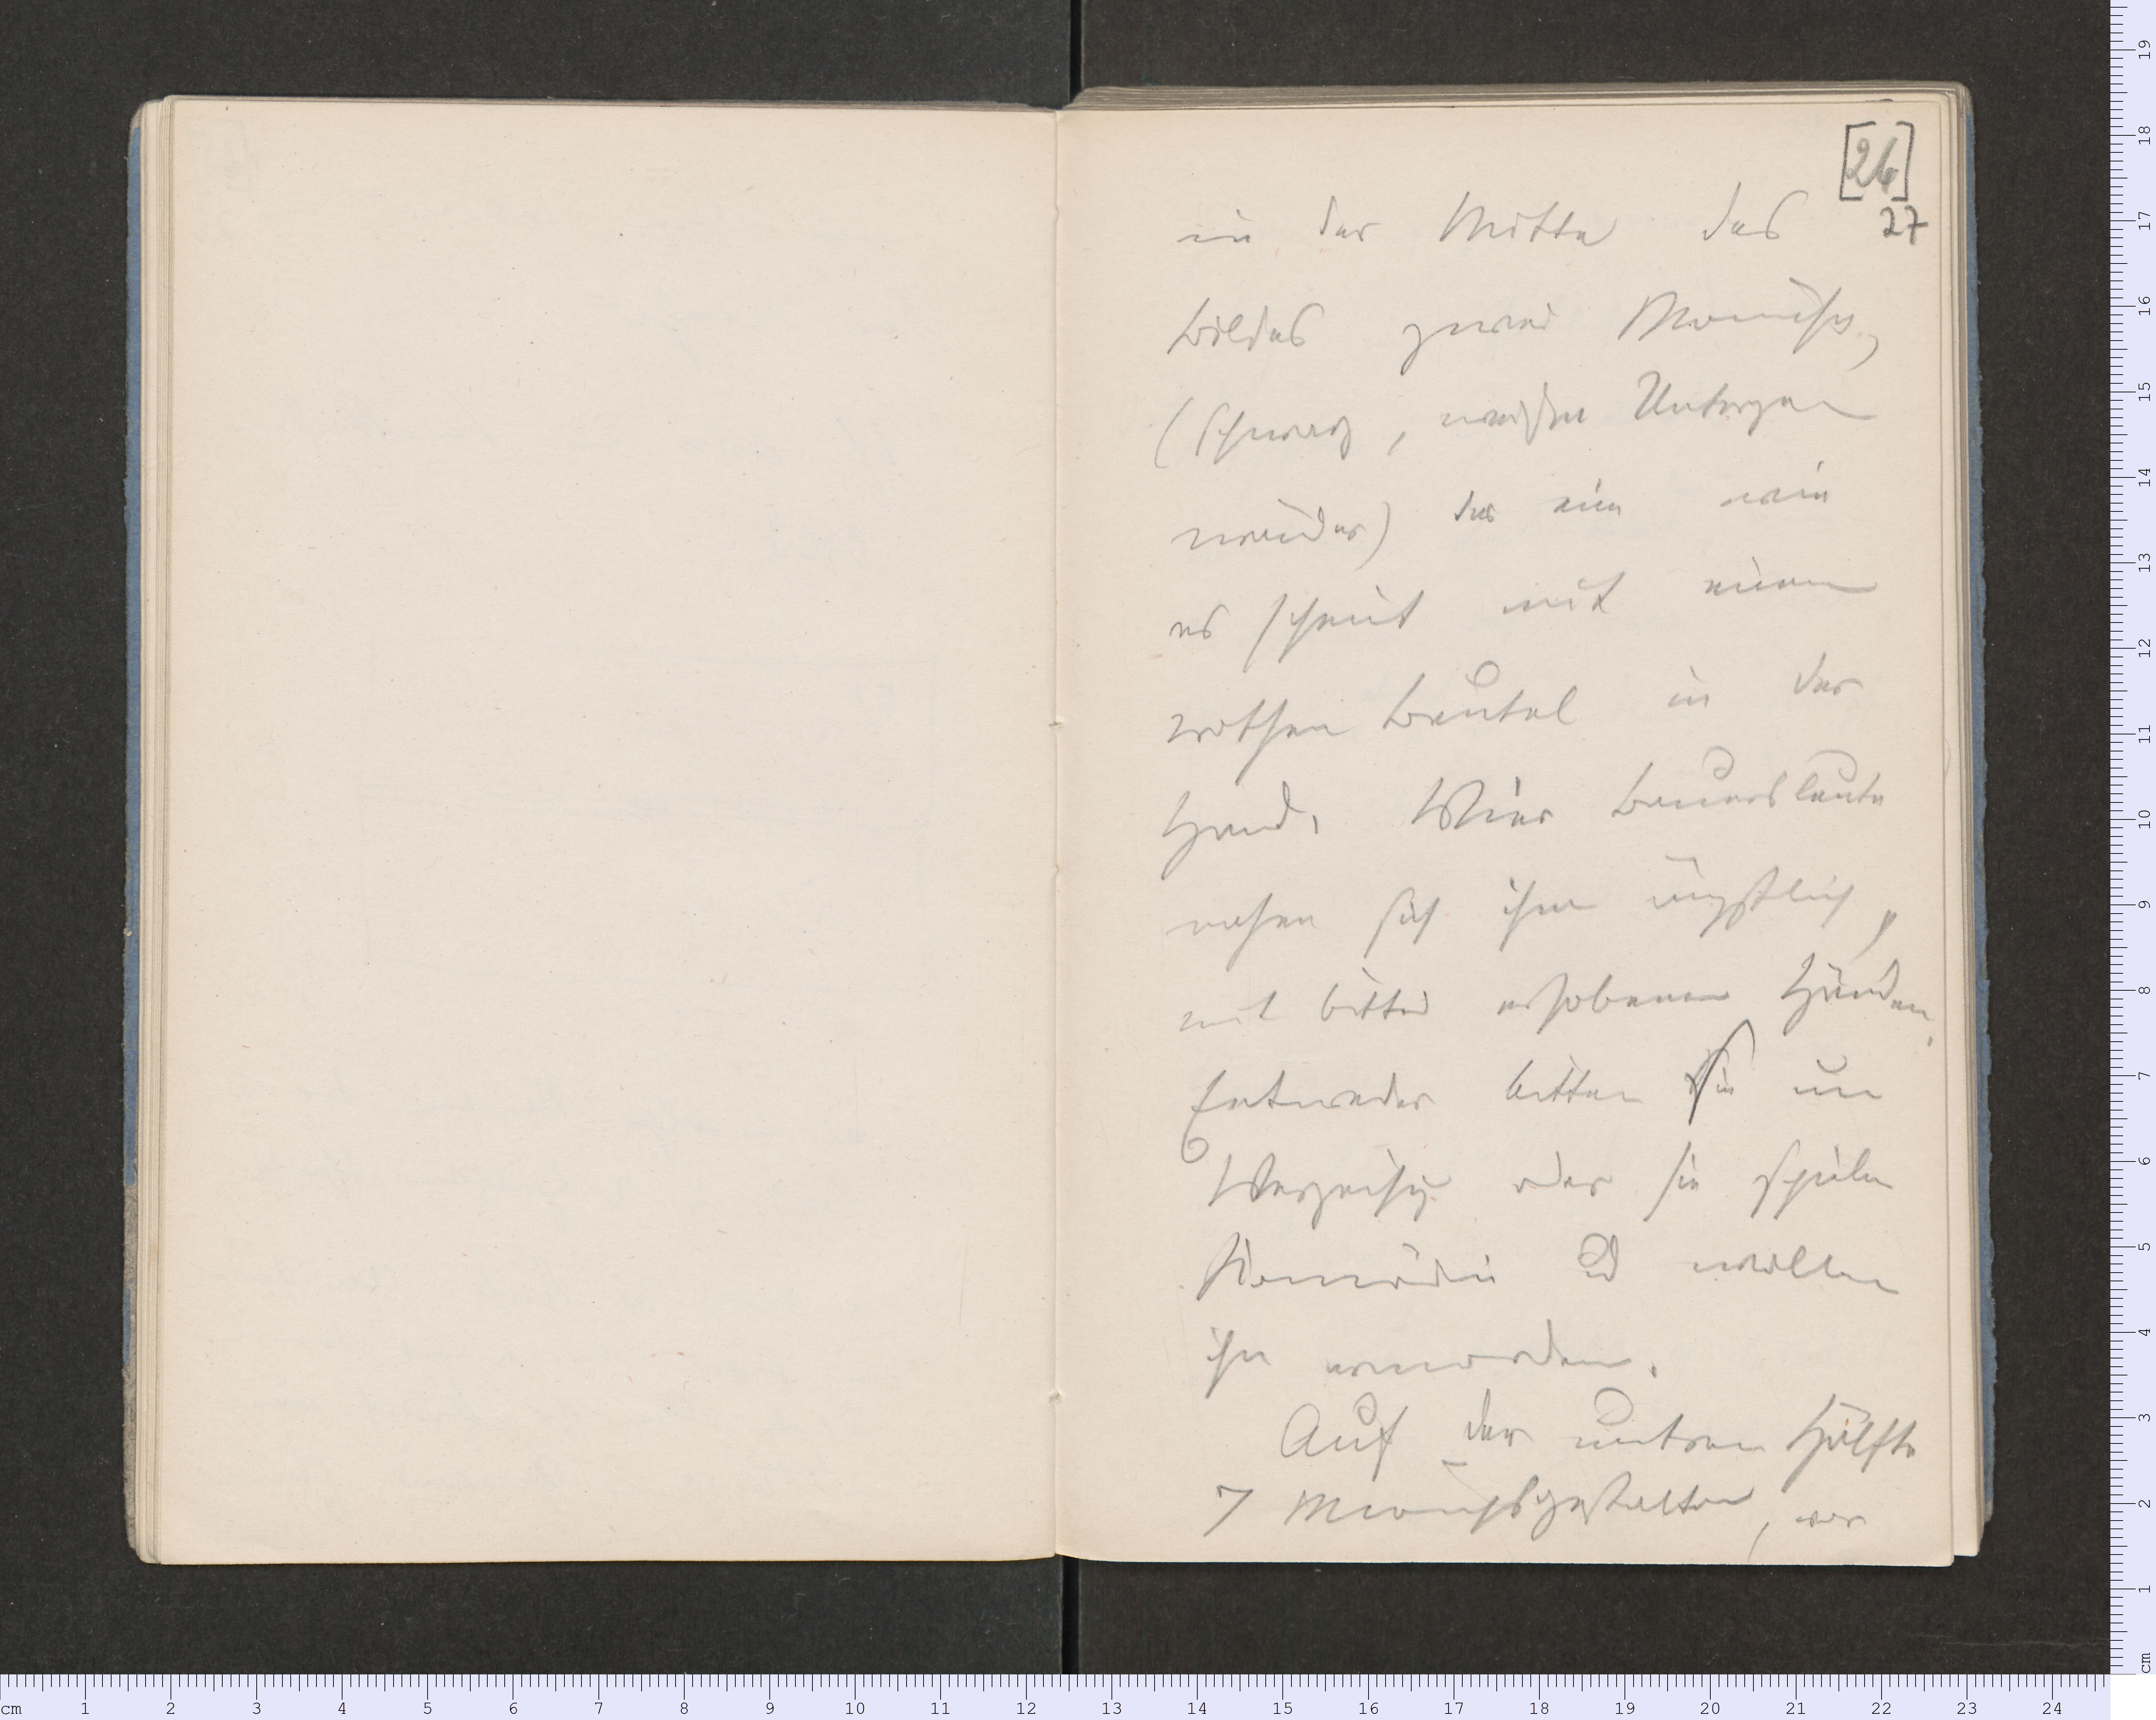 [26]
27
in der Mitte des
Bildes zwei Mönche,
(schwarz, weißen Untergen
wänder) der ein wie
es scheint mit einem
rothen Beutel in der
Hand. Vier Bauersleute
nahen sich ihm ängstlich,
mit bittd erhobenen Händen.
Entweder bitten sie um
Verzeihg oder sie spielen
Komödie und wollen
ihn ermorden.
Auf der unteren Hälfte
7 Mönchsgestalten, vor